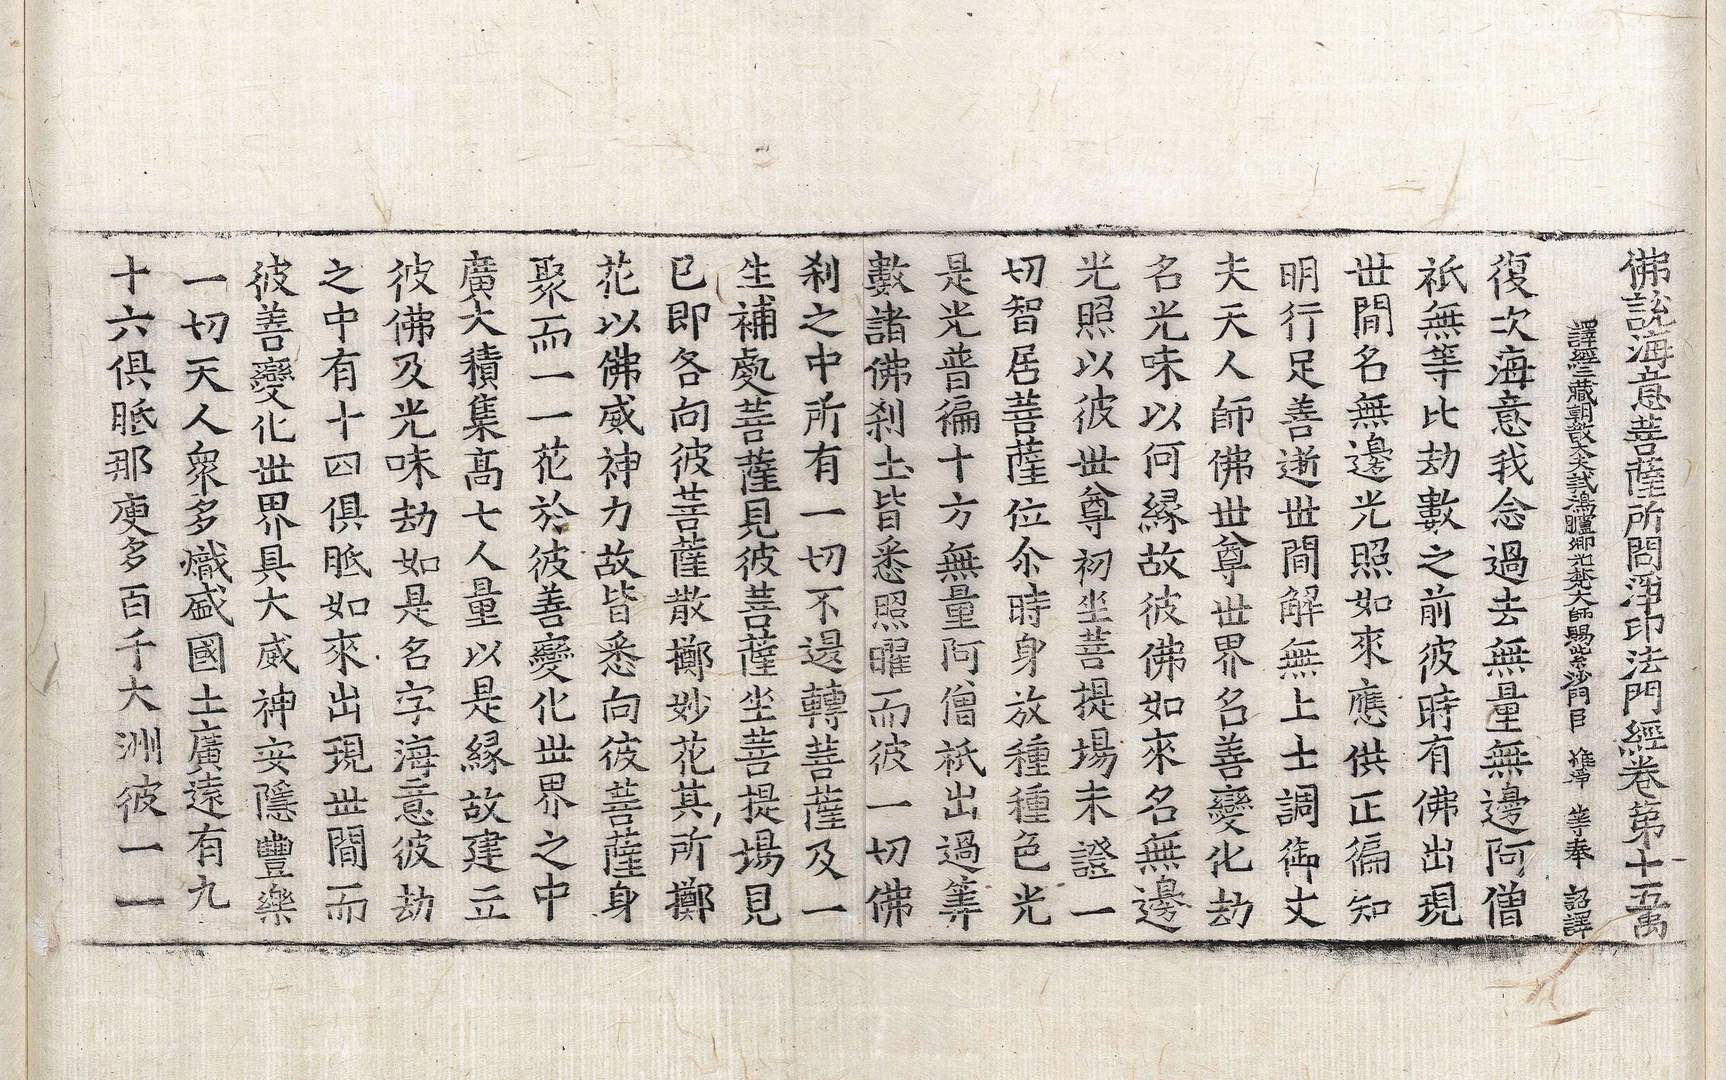 佛說海意菩薩所問淨印法門經卷第十五 禹
譯經三藏朝散大夫試鴻臚卿光梵大師賜紫沙門臣 惟淨 等奉 詔譯
復次海意我念過去無量無邊阿僧
祇無等比劫數之前彼時有佛出現
世間名無邊光照如來應供正徧知
明行足善逝世間解無上士調御丈
夫天人師佛世尊世界名善變化劫
名光味以何緣故彼佛如來名無邊
光照以彼世尊初坐菩提場未證一
切智居菩薩位尒時身放種種色光
是光普徧十方無量阿僧祇出過筭
數諸佛剎土皆悉照曜而彼一切佛
剎之中所有一切不退轉菩薩及一
生補處菩薩見彼菩薩坐菩提場見
已即各向彼菩薩散擲妙花其所擲
花以佛威神力故皆悉向彼菩薩身
聚而一一花於彼善變化世界之中
廣大積集高七人量以是緣故建立
彼佛及光味劫如是名字海意彼劫
之中有十四俱胝如來出現世間而
彼善變化世界具大威神安隱豐樂
一切天人衆多熾盛國土廣遠有九
十六俱胝那庾多百千大洲彼一一